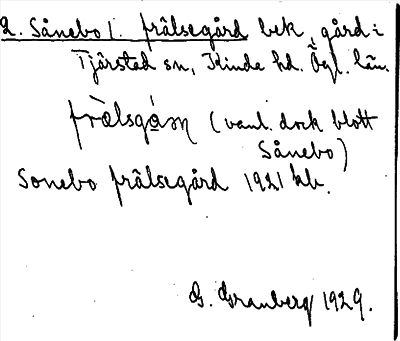 2. Sånebo 1. frälsegård bek, gård i
Tjärstad sn, Kinda hd. Ögl. län.
(vanl. dock blott
Sånebo)
Sonebo frälsegård 1921 kb.
G. Granberg 1929.